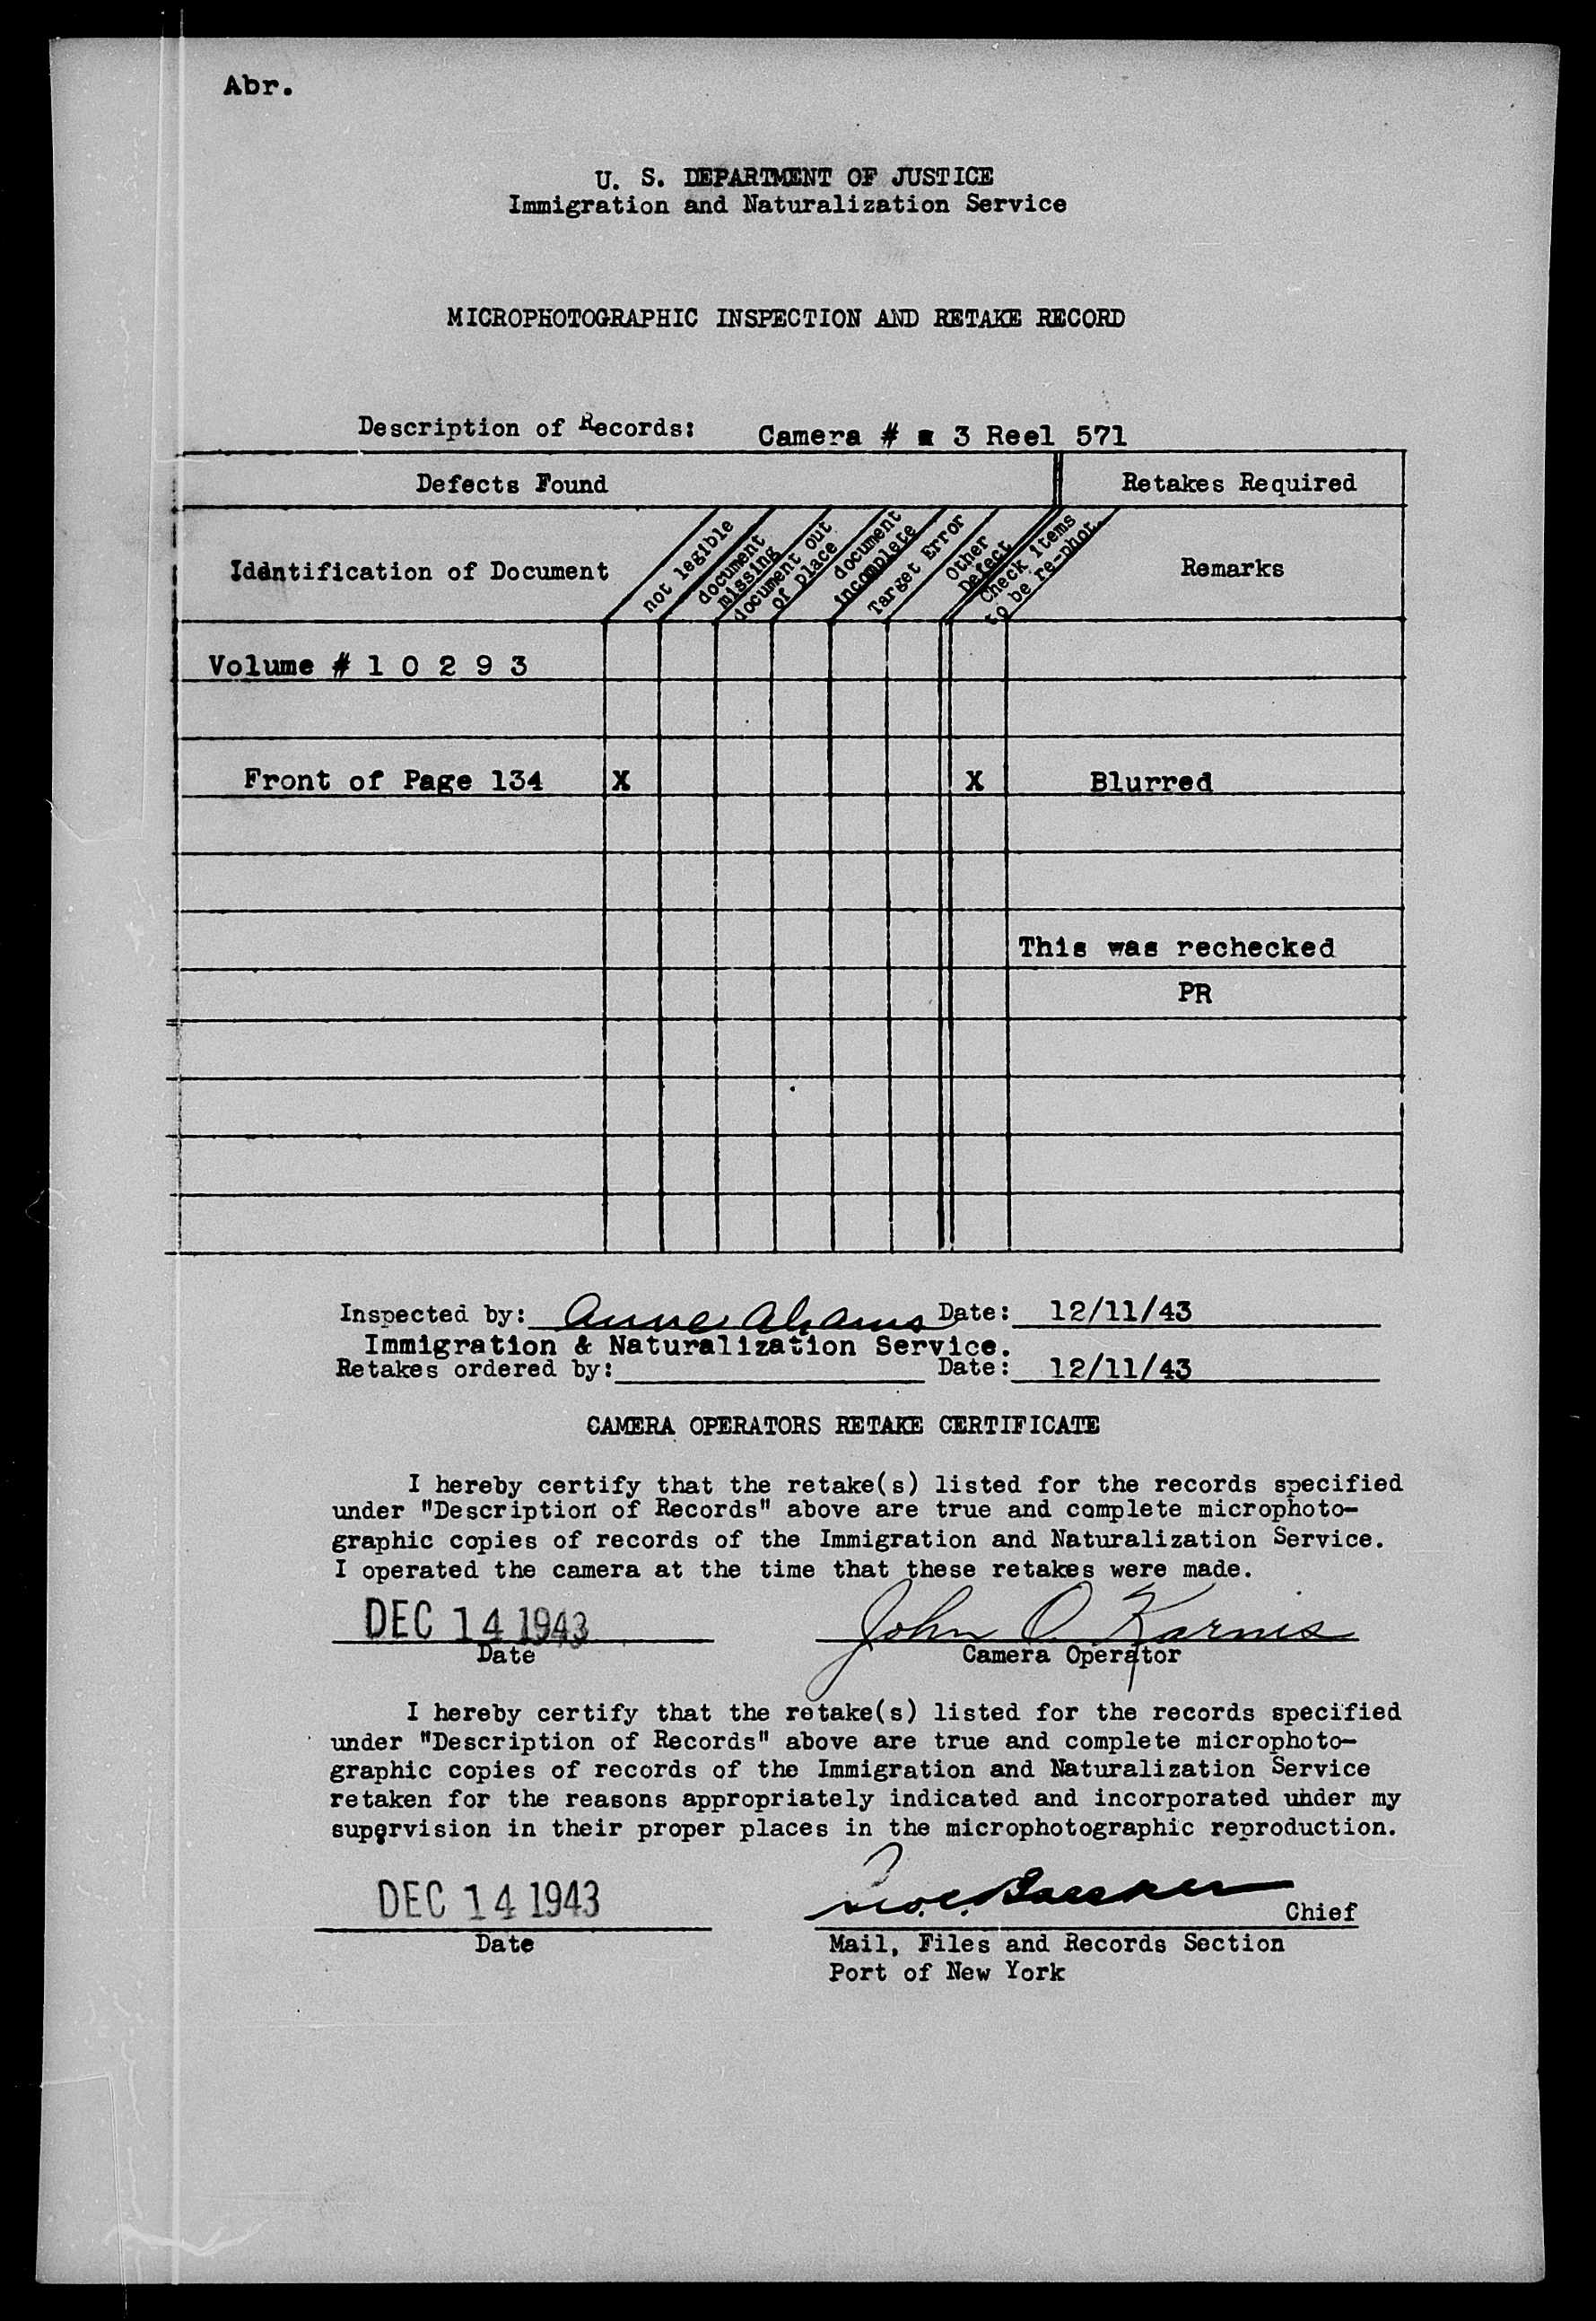 Abr.
U. S. DEPARTMENT OF JUSTICE
Immigration and Naturalization Service
MICROPHOTOGRAPHIC INSPECTION AND RETAKE RECORD
Description of Records: Camera # 3 Reel 571
Defects Found Retakes Required
Identification of Document
not legible
document
missing
document out
of place
document
incomplete
Target Error
Other
Defect
Check items
to be re-phot.
Remarks
Volume # 1 0 2 9 3
Front of Page 134 X X Blurred
This was rechecked
PR
Inspected by: Anne Abrams Date: 12/11/43
Immigration & Naturalization Service.
Retakes ordered by: Date: 12/11/43
CAMERA OPERATORS RETAKE CERTIFICATE
I hereby certify that the retake(s) listed for the records specified
under "Description of Records" above are true and complete microphoto-
graphic copies of records of the Immigration and Naturalization Service.
I operated the camera at the time that these retakes were made.
DEC 14 1943 John O. Karnis
Date Camera Operator
I hereby certify that the retake(s) listed for the records specified
under "Description of Records" above are true and complete microphoto-
graphic copies of records of the Immigration and Naturalization Service
retaken for the reasons appropriately indicated and incorporated under my
supervision in their proper places in the microphotographic reproduction.
DEC 14 1943 Chief
Date Mail, Files and Records Section
Port of New York